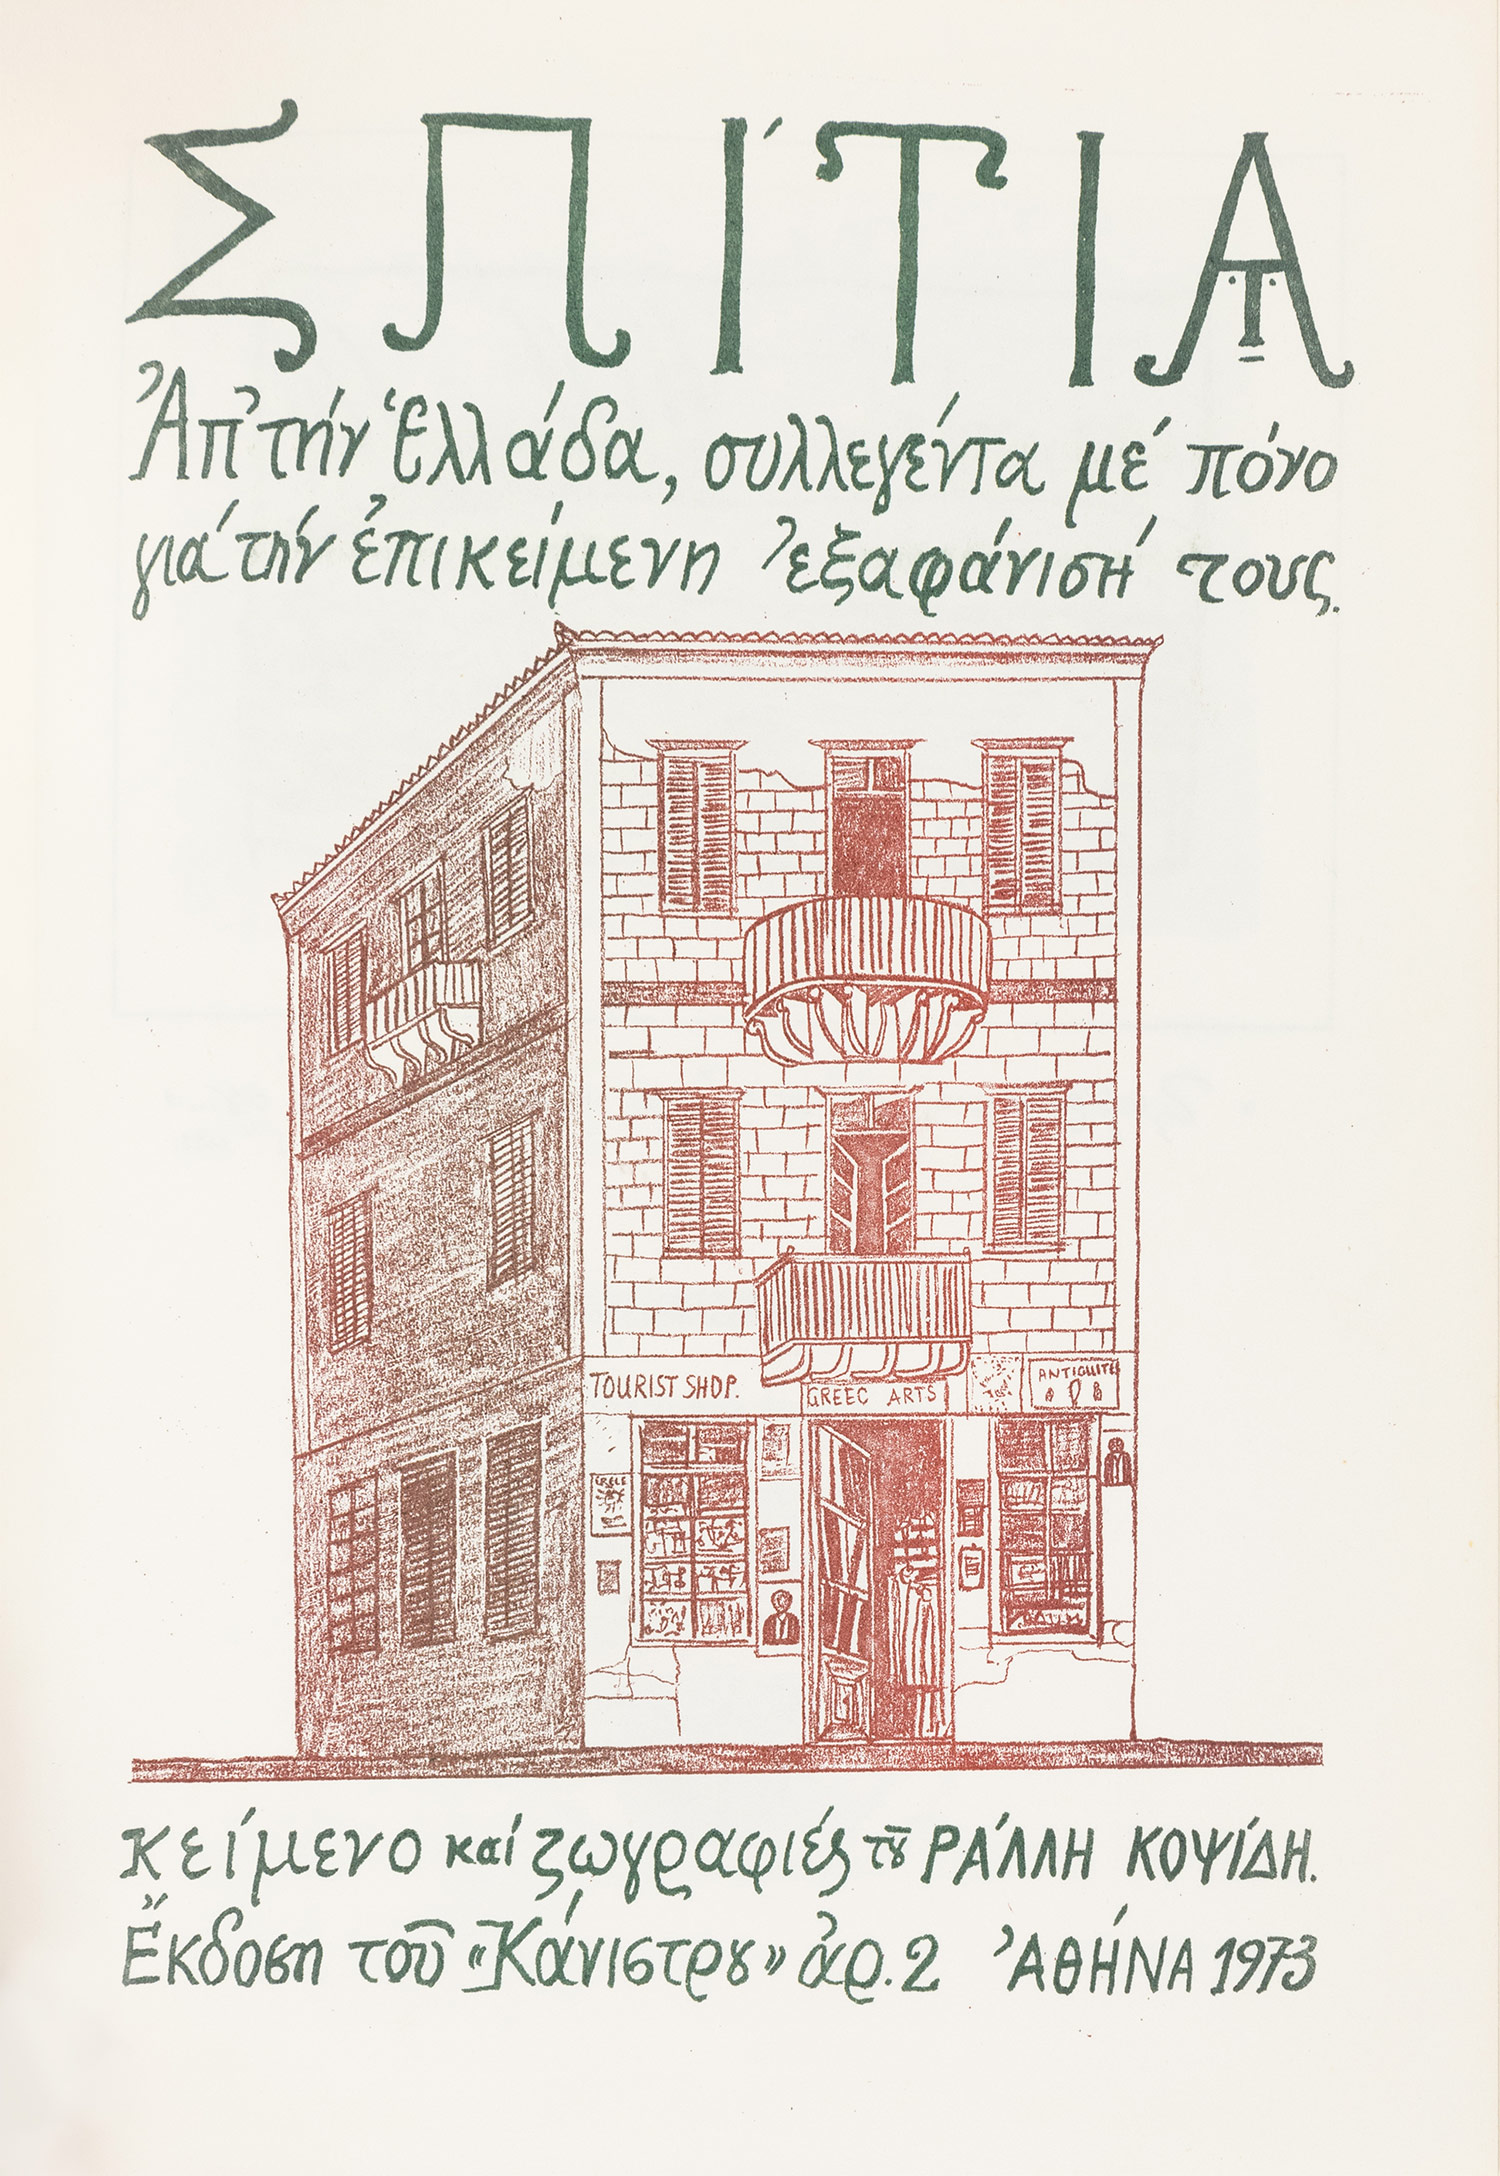 ΣΠΊΤΙΑ
Ἀπ' τήν Ἑλλάδα, συλλεγέντα μέ πόνο
γιά τήν ἐπικείμενη ἐξαφάνισή τους.
TOURIST SHOP.
GREEC ARTS
ANTIQUITE
κείμενο καί ζωγραφιές τȣ͂ ΡΆΛΛΗ ΚΟΨΊΔΗ.
Ἔκδοση τοῦ «Κάνιστρȣ» ἀρ. 2 ἈΘΉΝΑ 1973